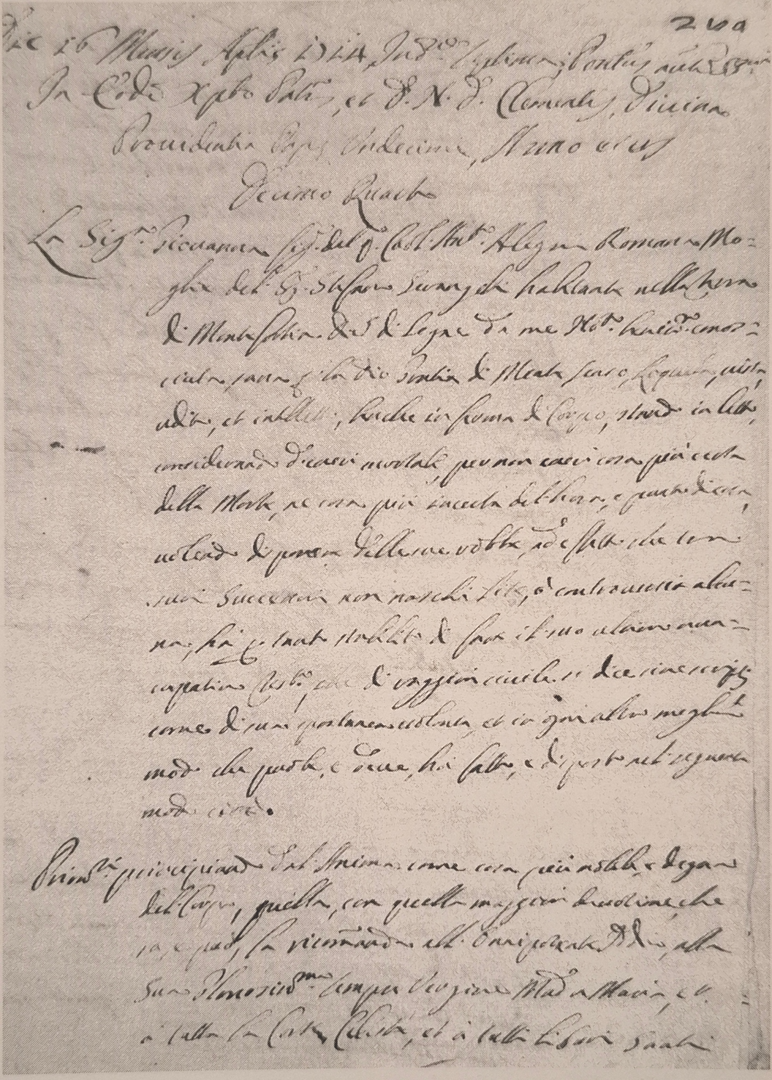 240
Die 16 Mensis Aplis 1714 Ind.e Septima, Pontus
In Xpto Patris, et D. N. D. Clementis, Divina
Providentia Pape Undecimi, Anno eius
Decimo Quarto
La Sig.ra Giovanna del q. Alegra Romana Mo=
glie del Sig. Stefano habitante nella Terra
di Monte di da me Not.o cono=
sciuta, sana di Mente, vista,
udito, et intelletto, benche in forma di Corpo, stando in letto,
considerando d'esser mortale, per non esservi cosa più certa
della Morte, ne cosa più incerta dell'hora, e punto di essa,
volendo disporre delle sue robbe, ad effetto che tra
suoi Successori non naschi lite, ò controversia alcu=
na, hà stabilito di fare il suo ultimo nun=
cupativo Test.o, che di raggion civile si dice sine scriptis
come di sua spontanea volontà, et in ogni altro meglior
modo che puole, e deve, hà fatto, e disposto nel seguente
modo cioè.
Prim.te principiando dall'Anima come cosa più nobile, e degna
del Corpo, quella, con quella maggior devotione, che
sà, e può, la ricomanda all'Onnipotente Dio, alla
Sua Gloriosis.ma semper Vergine Mad.e Maria, e
à tutta la Corte Celeste, et à tutti li Santi